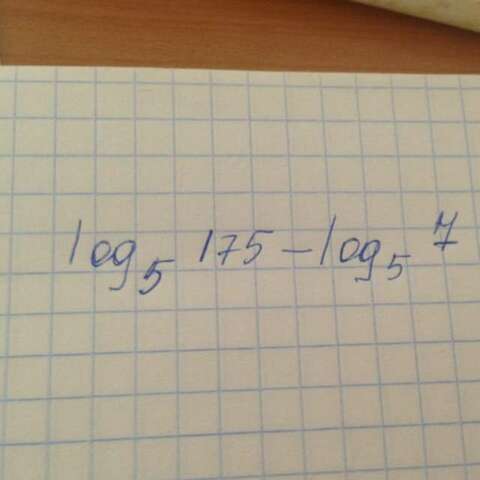 log₅ 175 – log₅ 7